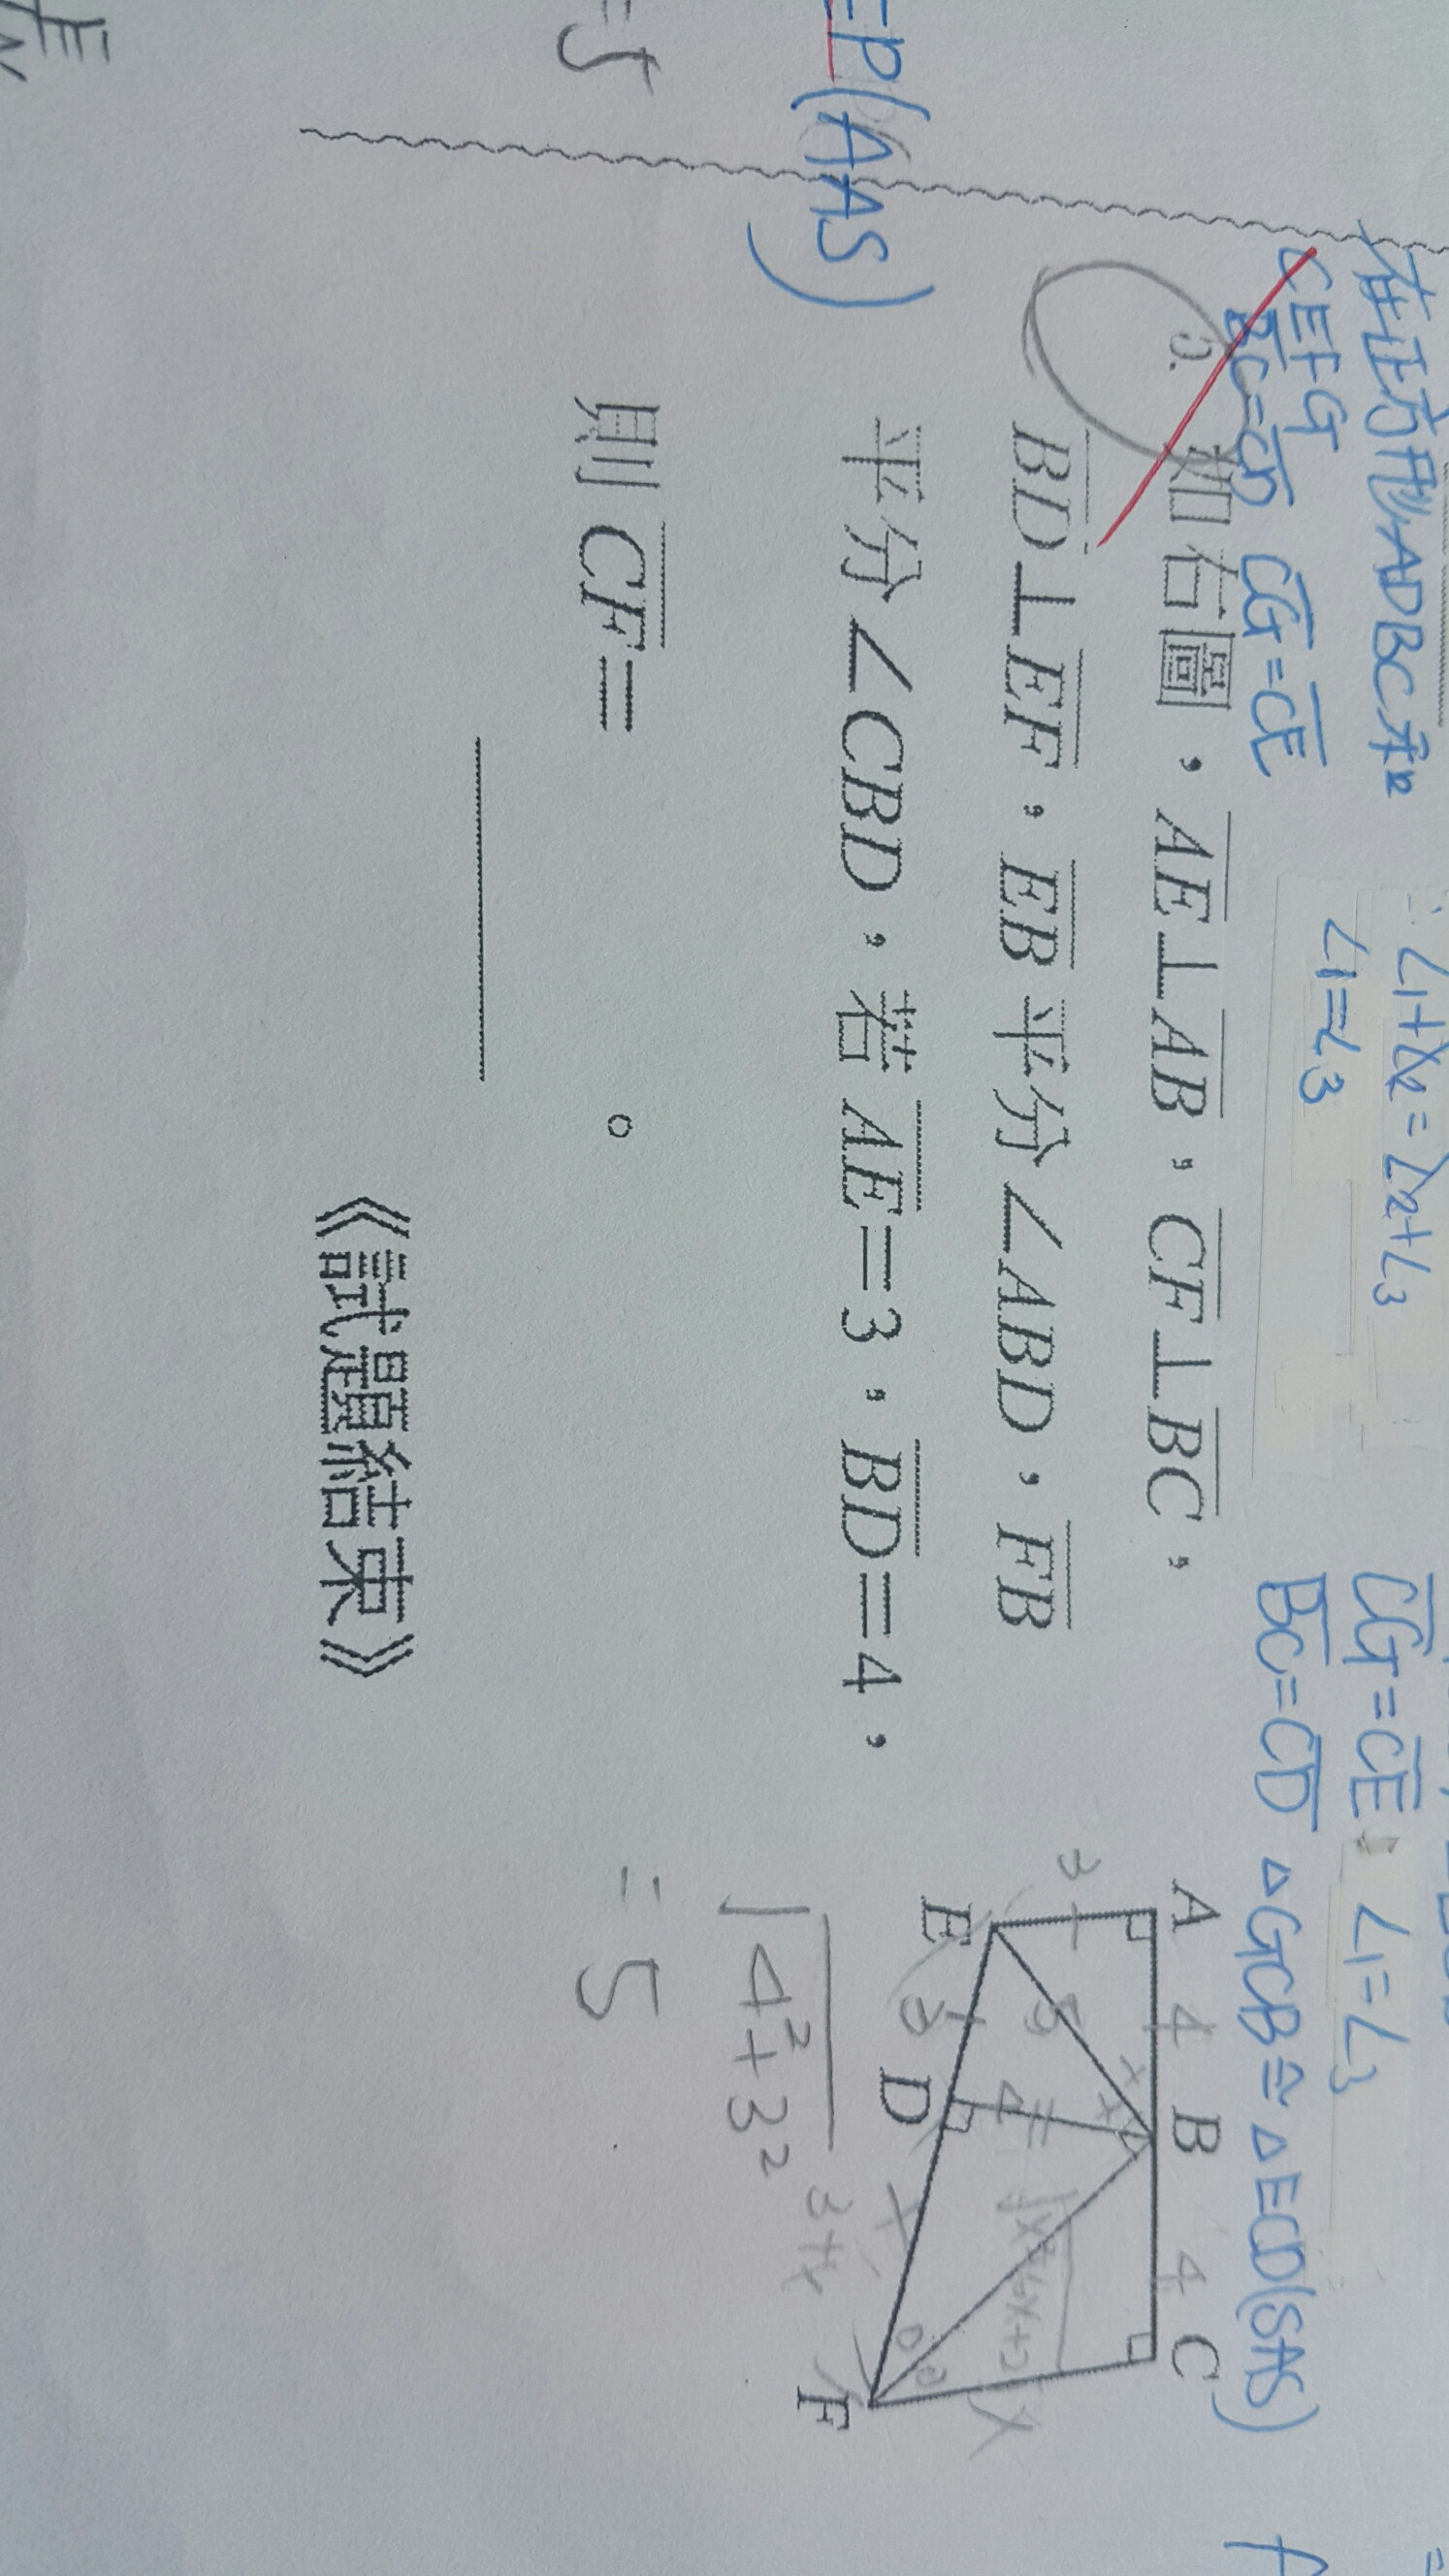 在正方形ADBC和
CEFG
BC=CD CG=CE
∠1+∠2=∠2+∠3
∠1=∠3
CG=CE, ∠1=∠3
BC=CD △GCB≅△ECD(SAS)
如右圖，AE⊥AB，CF⊥BC，
BD⊥EF，EB平分∠ABD，FB
平分∠CBD，若AE=3，BD=4，
則CF=
。
《試題結束》
A 4 B 4 C
3
5
4
E 3 D x F
x
3+x
√4²+3²
=5
P(AAS)
=5